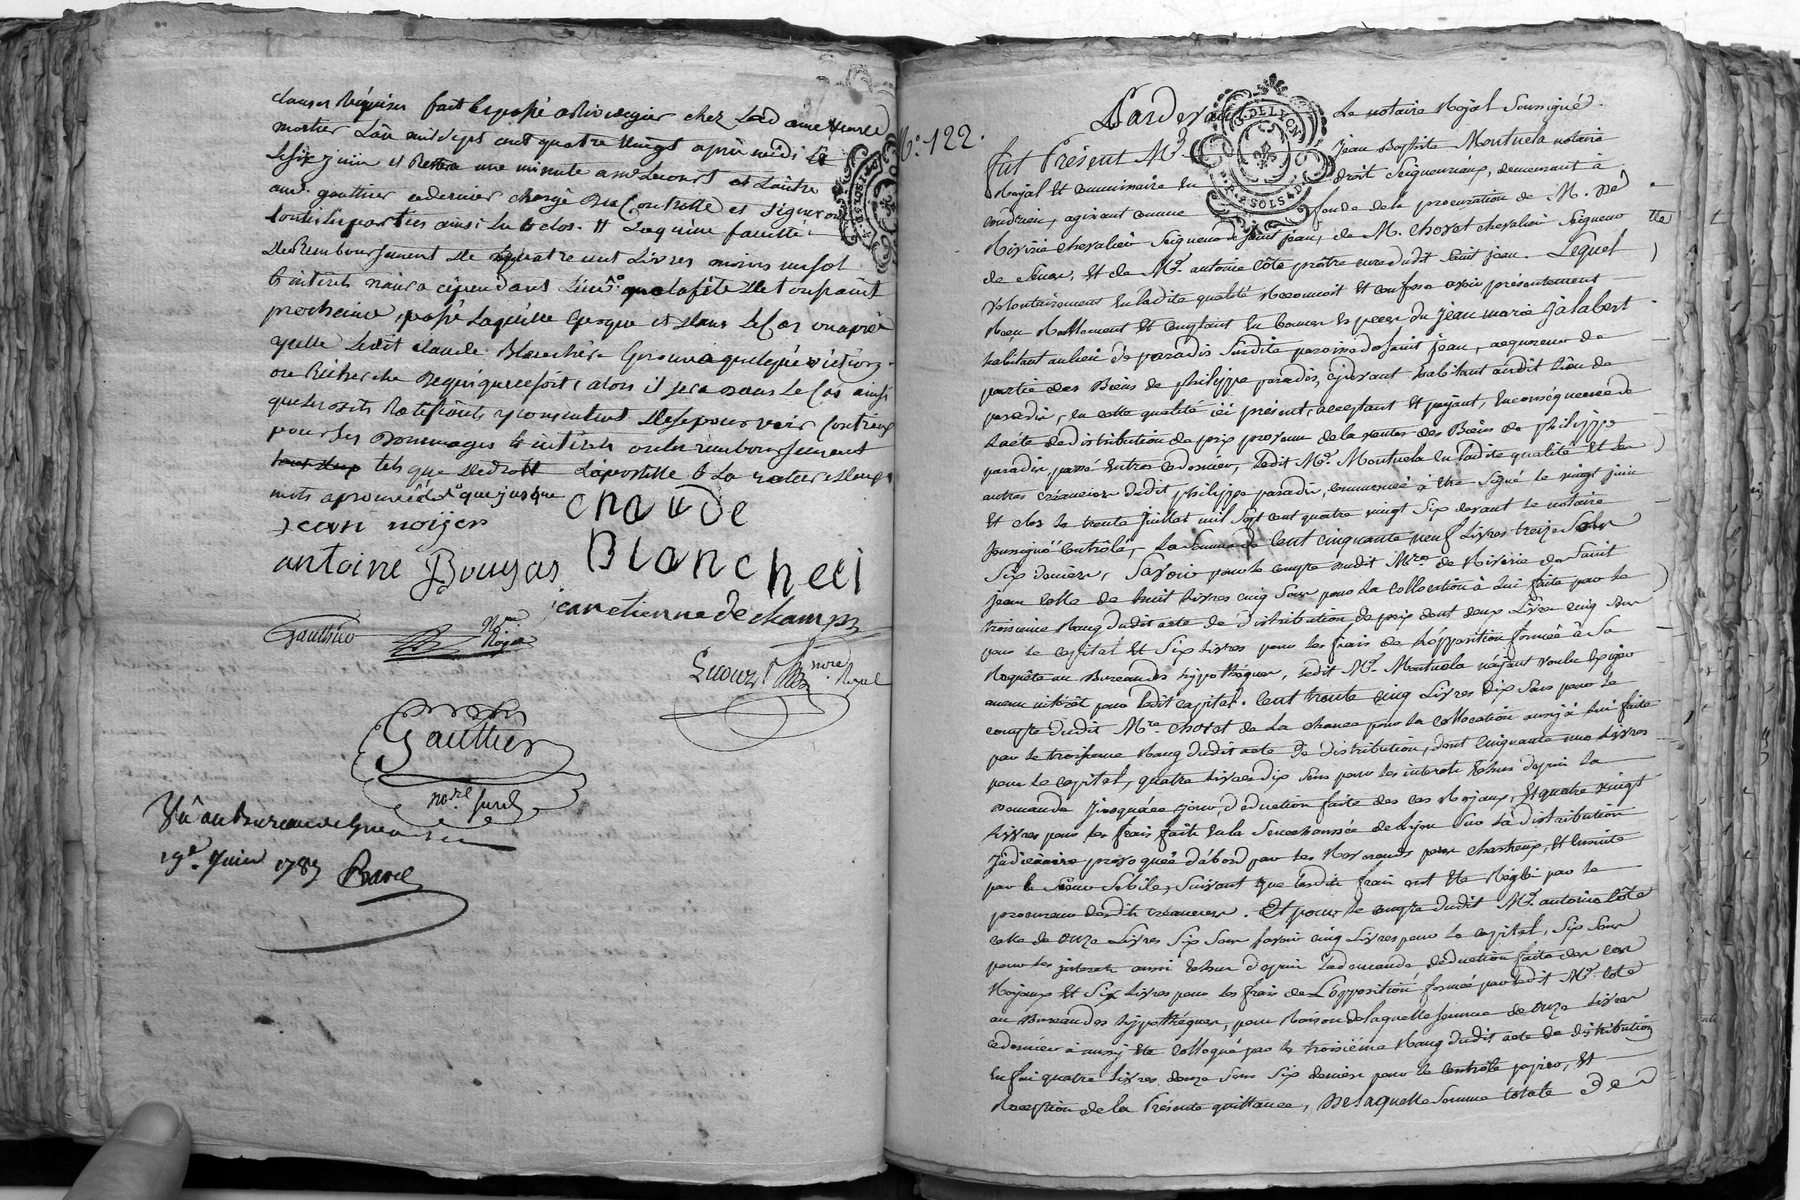 clauses requises fait & passé a Rivedegier chez
mortier L'an mil sept cent quatre vingt après midi le
Six juin et une minute a me Lecourt et L'autre
a me gauthier ce dernier chargé Du Controlle et signeront
toutes les parties ainsi Lu & clos.
Du Remboursement De quatre cent Livres moins un sol
& intérêts n'aura cependant Lieu que la fête De toussaint
prochaine, passé Laquelle Epoque et Dans Le Cas ou après
ycelle Ledit Claude Blanchet Eprouva quelque
ou Recherche De qui que ce soit, alors il sera Dans Le Cas ainsi
que Lesdits y consentent De se pourvoir Contreux
pour Ses Dommages & intérêts ou Le remboursement
tels que De droit
mots aprouvé que jusque
jean noijer
chaude
antoine Bouyas
Blanchett
jean etienne de champs
Gauthier
Nre Royal
Lecourt nore Royal
Gauthier
nore sured
Vû au bureau de
19e. Juin 1787 Ravel
No. 122.
G. DE LYON
Pardevant Le notaire Royal Soussigné.
fut Présent Me. Jean Baptiste Montuela notaire
Royal Et Commissaire En droit Seigneuriaux, demeurant à
Condrieu, agissant comme fondé de la procuration de M. De
Rivirie chevalier Seigneur de Saint jean, de M. chovet chevalier Seigneur
de et de Me. antoine Côte prêtre curé dudit Saint jean. Lequel
volontairement En ladite qualité Reconnoit Et confesse avoir présentement
Reçu Réellement Et Comptant En bonnes Espèces du jean marie Jalabert
habitant au lieu de paradis Susdite paroisse de Saint jean, acquereur de
partie des Biens de Philippe paradis, cy devant habitant audit Lieu de
paradis, En cette qualité ici présent, acceptant Et payant, En conséquence de
L'acte de distribution de prix provenu de la ventes des Biens de Philippe
paradis, passé Entre ce dernier, Ledit Me. Montuela En ladite qualité Et les
autres créanciers dudit philippe paradis, commencé à être Signé le vingt juin
Et clos le trente Juillet mil Sept cent quatre vingt Six devant le notaire
Soussigné Contrôlé, La Somme de Cent cinquante neuf Livres treize Sols
Six deniers, Savoir pour le compte dudit Mre. de Rivirie de Saint
jean celle de huit Livres cinq Sous pour la Collocation à Lui faite par le
troisieme Rang dudit acte de distribution de prix dont deux Livres cinq Sous
pour le capital Et Six Livres pour les frais de L'opposition formée à Sa
Requête au Bureau des hypothéques, Ledit Me. Montuela n'ayant voulu Exiger
aucun intérêt pour Ledit capital. Cent trente cinq Livres dix Sous pour le
compte dudit Mre. Chovet de La chance pour la collocation aussi à lui faite
par le troisieme Rang dudit acte De distribution, dont cinquante une Livres
pour le capital, quatre Livres dix Sous pour les interets Echus depuis la
Demande Jusqu'à ce jour, déduction faite des cas Royaux, Et quatre vingt
Livres pour les frais faits En la Senechaussée de Lyon Sur la distribution
Judiciaire provoquée d'abord par les Reverends peres chartreux, Et Ensuite
par le Sieur Sebile, Suivant que Lesdits frais ont Eté Réglés par le
procureur desdits créanciers. Et pour le compte dudit Me. antoine Côte
celle de onze Livres Six Sous Savoir cinq Livres pour le capital, Six Sous
pour les interets aussi Echus depuis La demande déduction faite des cas
Royaux Et Six Livres pour les frais de L'opposition formée par Ledit Me. Cote
au Bureau des hypothéques, pour Raison de laquelle Somme de onze Livres
ce dernier à aussy Eté colloqué par le troisième Rang dudit acte de distribution
Enfin quatre Livres douze Sous Six deniers pour le controle papier, Et
Reception de la Présente quittance, De laquelle Somme totale De